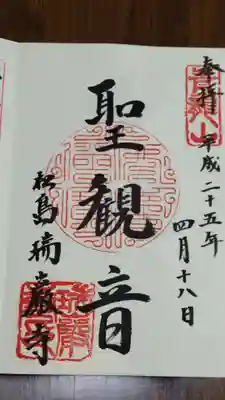 奉拝
平成二十五年
四月十八日
聖観音
松島瑞巌寺